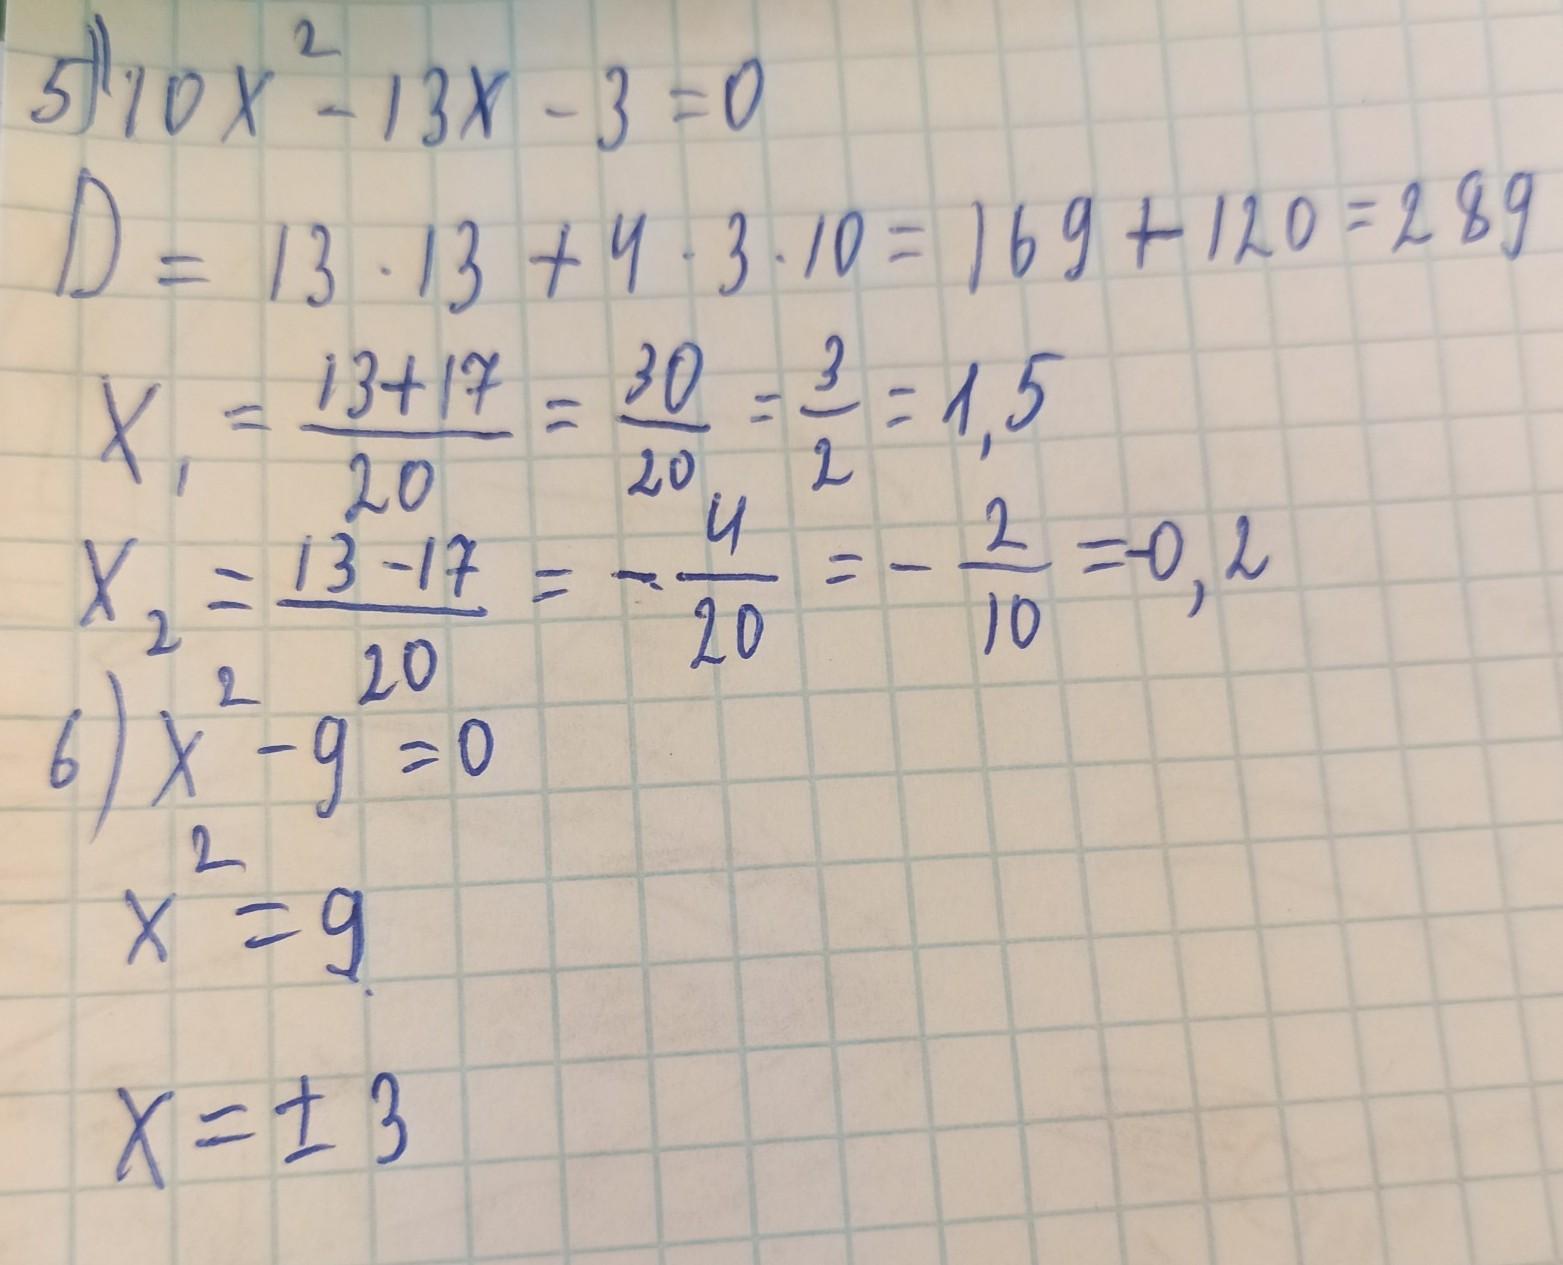 5) 10x² - 13x - 3 = 0
D = 13 · 13 + 4 · 3 · 10 = 169 + 120 = 289
x₁ = (13+17)/20 = 30/20 = 3/2 = 1,5
x₂ = (13-17)/20 = -4/20 = -2/10 = -0,2
6) x² - 9 = 0
x² = 9
x = ± 3